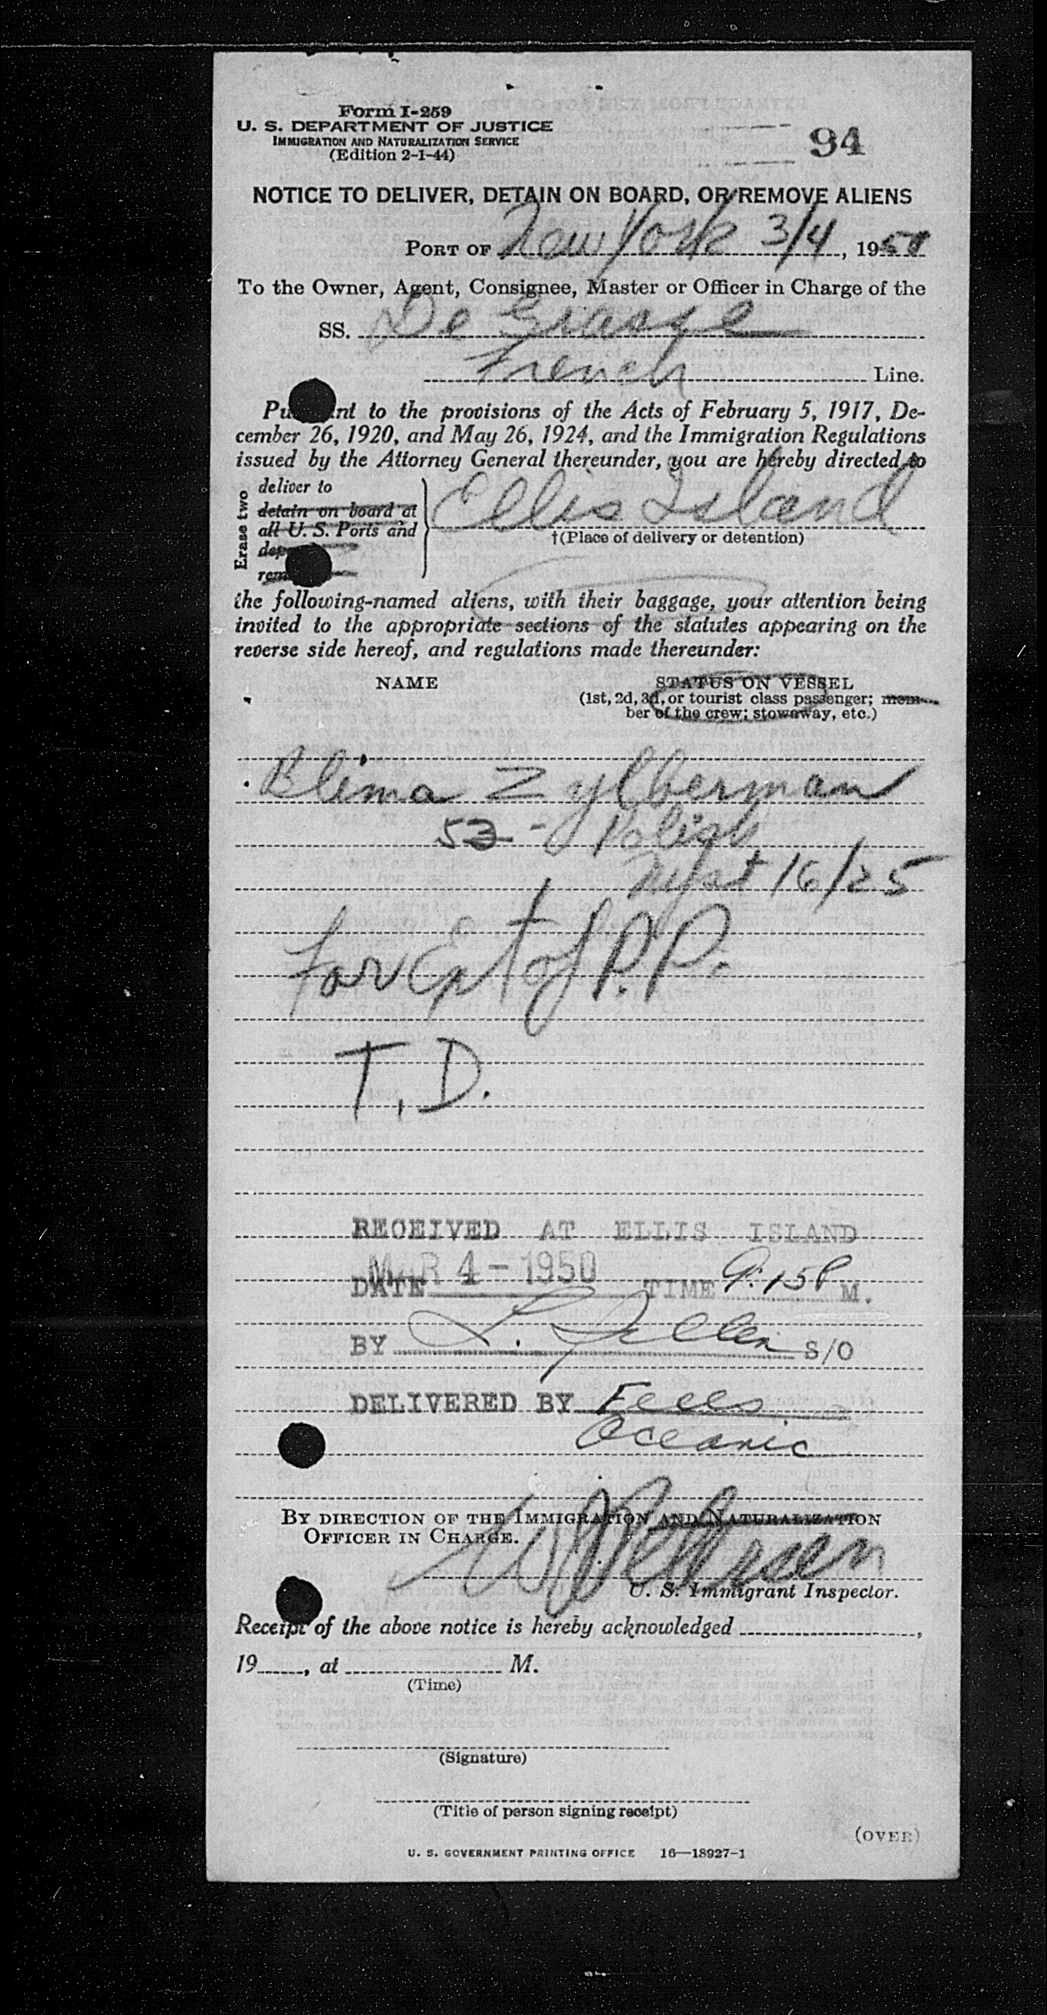 Form I-259
U. S. DEPARTMENT OF JUSTICE
IMMIGRATION AND NATURALIZATION SERVICE
(Edition 2-1-44)
94
NOTICE TO DELIVER, DETAIN ON BOARD, OR REMOVE ALIENS
PORT OF New York 3/4, 1950
To the Owner, Agent, Consignee, Master or Officer in Charge of the
SS. De Grasse
French Line.
Pu nt to the provisions of the Acts of February 5, 1917, De-
cember 26, 1920, and May 26, 1924, and the Immigration Regulations
issued by the Attorney General thereunder, you are hereby directed to
Erase two
deliver to
detain on board at
all U. S. Ports and
dep
rem
Ellis Island
†(Place of delivery or detention)
the following-named aliens, with their baggage, your attention being
invited to the appropriate sections of the statutes appearing on the
reverse side hereof, and regulations made thereunder:
NAME STATUS ON VESSEL
(1st, 2d, 3d, or tourist class passenger; mem-
ber of the crew; stowaway, etc.)
Blima Zylberman
53 - Polish
16/25
for Ext of P.P.
T.D.
RECEIVED AT ELLIS ISLAND
DATE MAR 4 - 1950 TIME 9:15P M.
BY L. S/O
DELIVERED BY
Oceanic
BY DIRECTION OF THE IMMIGRATION AND NATURALIZATION
OFFICER IN CHARGE.
U. S. Immigrant Inspector.
Receipt of the above notice is hereby acknowledged ,
19 , at M.
(Time)
(Signature)
(Title of person signing receipt)
(OVER)
U. S. GOVERNMENT PRINTING OFFICE 16—18927-1